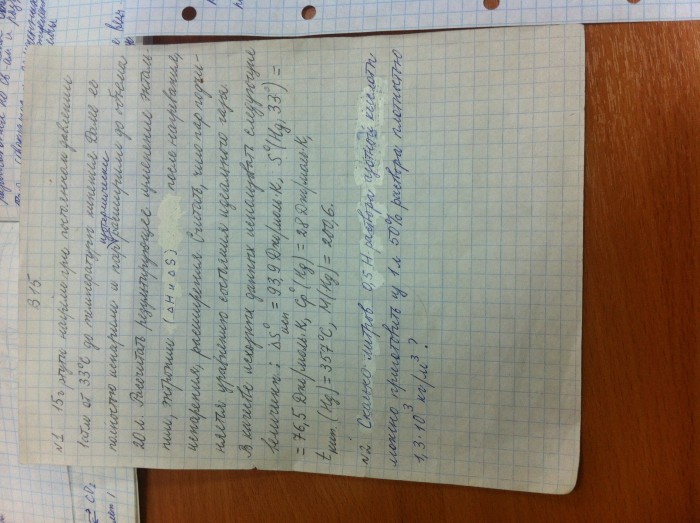 В 15
№1 15 г ртути нагрели при постоянном давлении
1 атм от 33°C до температуры кипения. Далее её
полностью испарили и пар изотермически расширили до объема
20 л. Рассчитать результирующее изменение энталь
пии, энтропии (ΔH и ΔS) после нагревания,
испарения, расширения. Считать, что пар подчи-
няется уравнению состояния идеального газа.
В качестве исходных данных использовать следующие
величины: ΔS°исп = 93,9 Дж/моль·К, S°(Hg, 33°) =
= 76,5 Дж/моль·К, Cp°(Hg) = 28 Дж/моль·К,
tкип.(Hg) = 357°C, M(Hg) = 200,6.
№2 Сколько литров 0,5 Н раствора азотной кислоты
можно приготовить из 1 л 50% раствора плотностью
1,3·10³ кг/м³?
CP₂